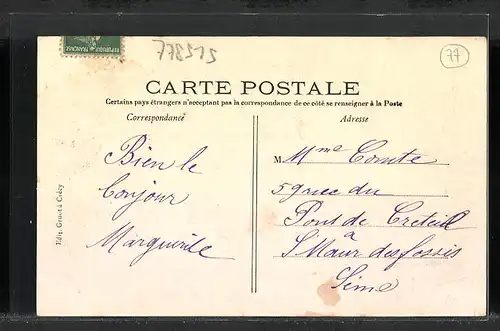 77
CARTE POSTALE
Certains pays étrangers n'acceptant pas la correspondance de ce côté se renseigner à la Poste
Correspondance
Adresse
Bien le
bonjour
Marguerite
M me Comte
59 rue du
Pont de Creteil
à
St Maur des fossés
Seine